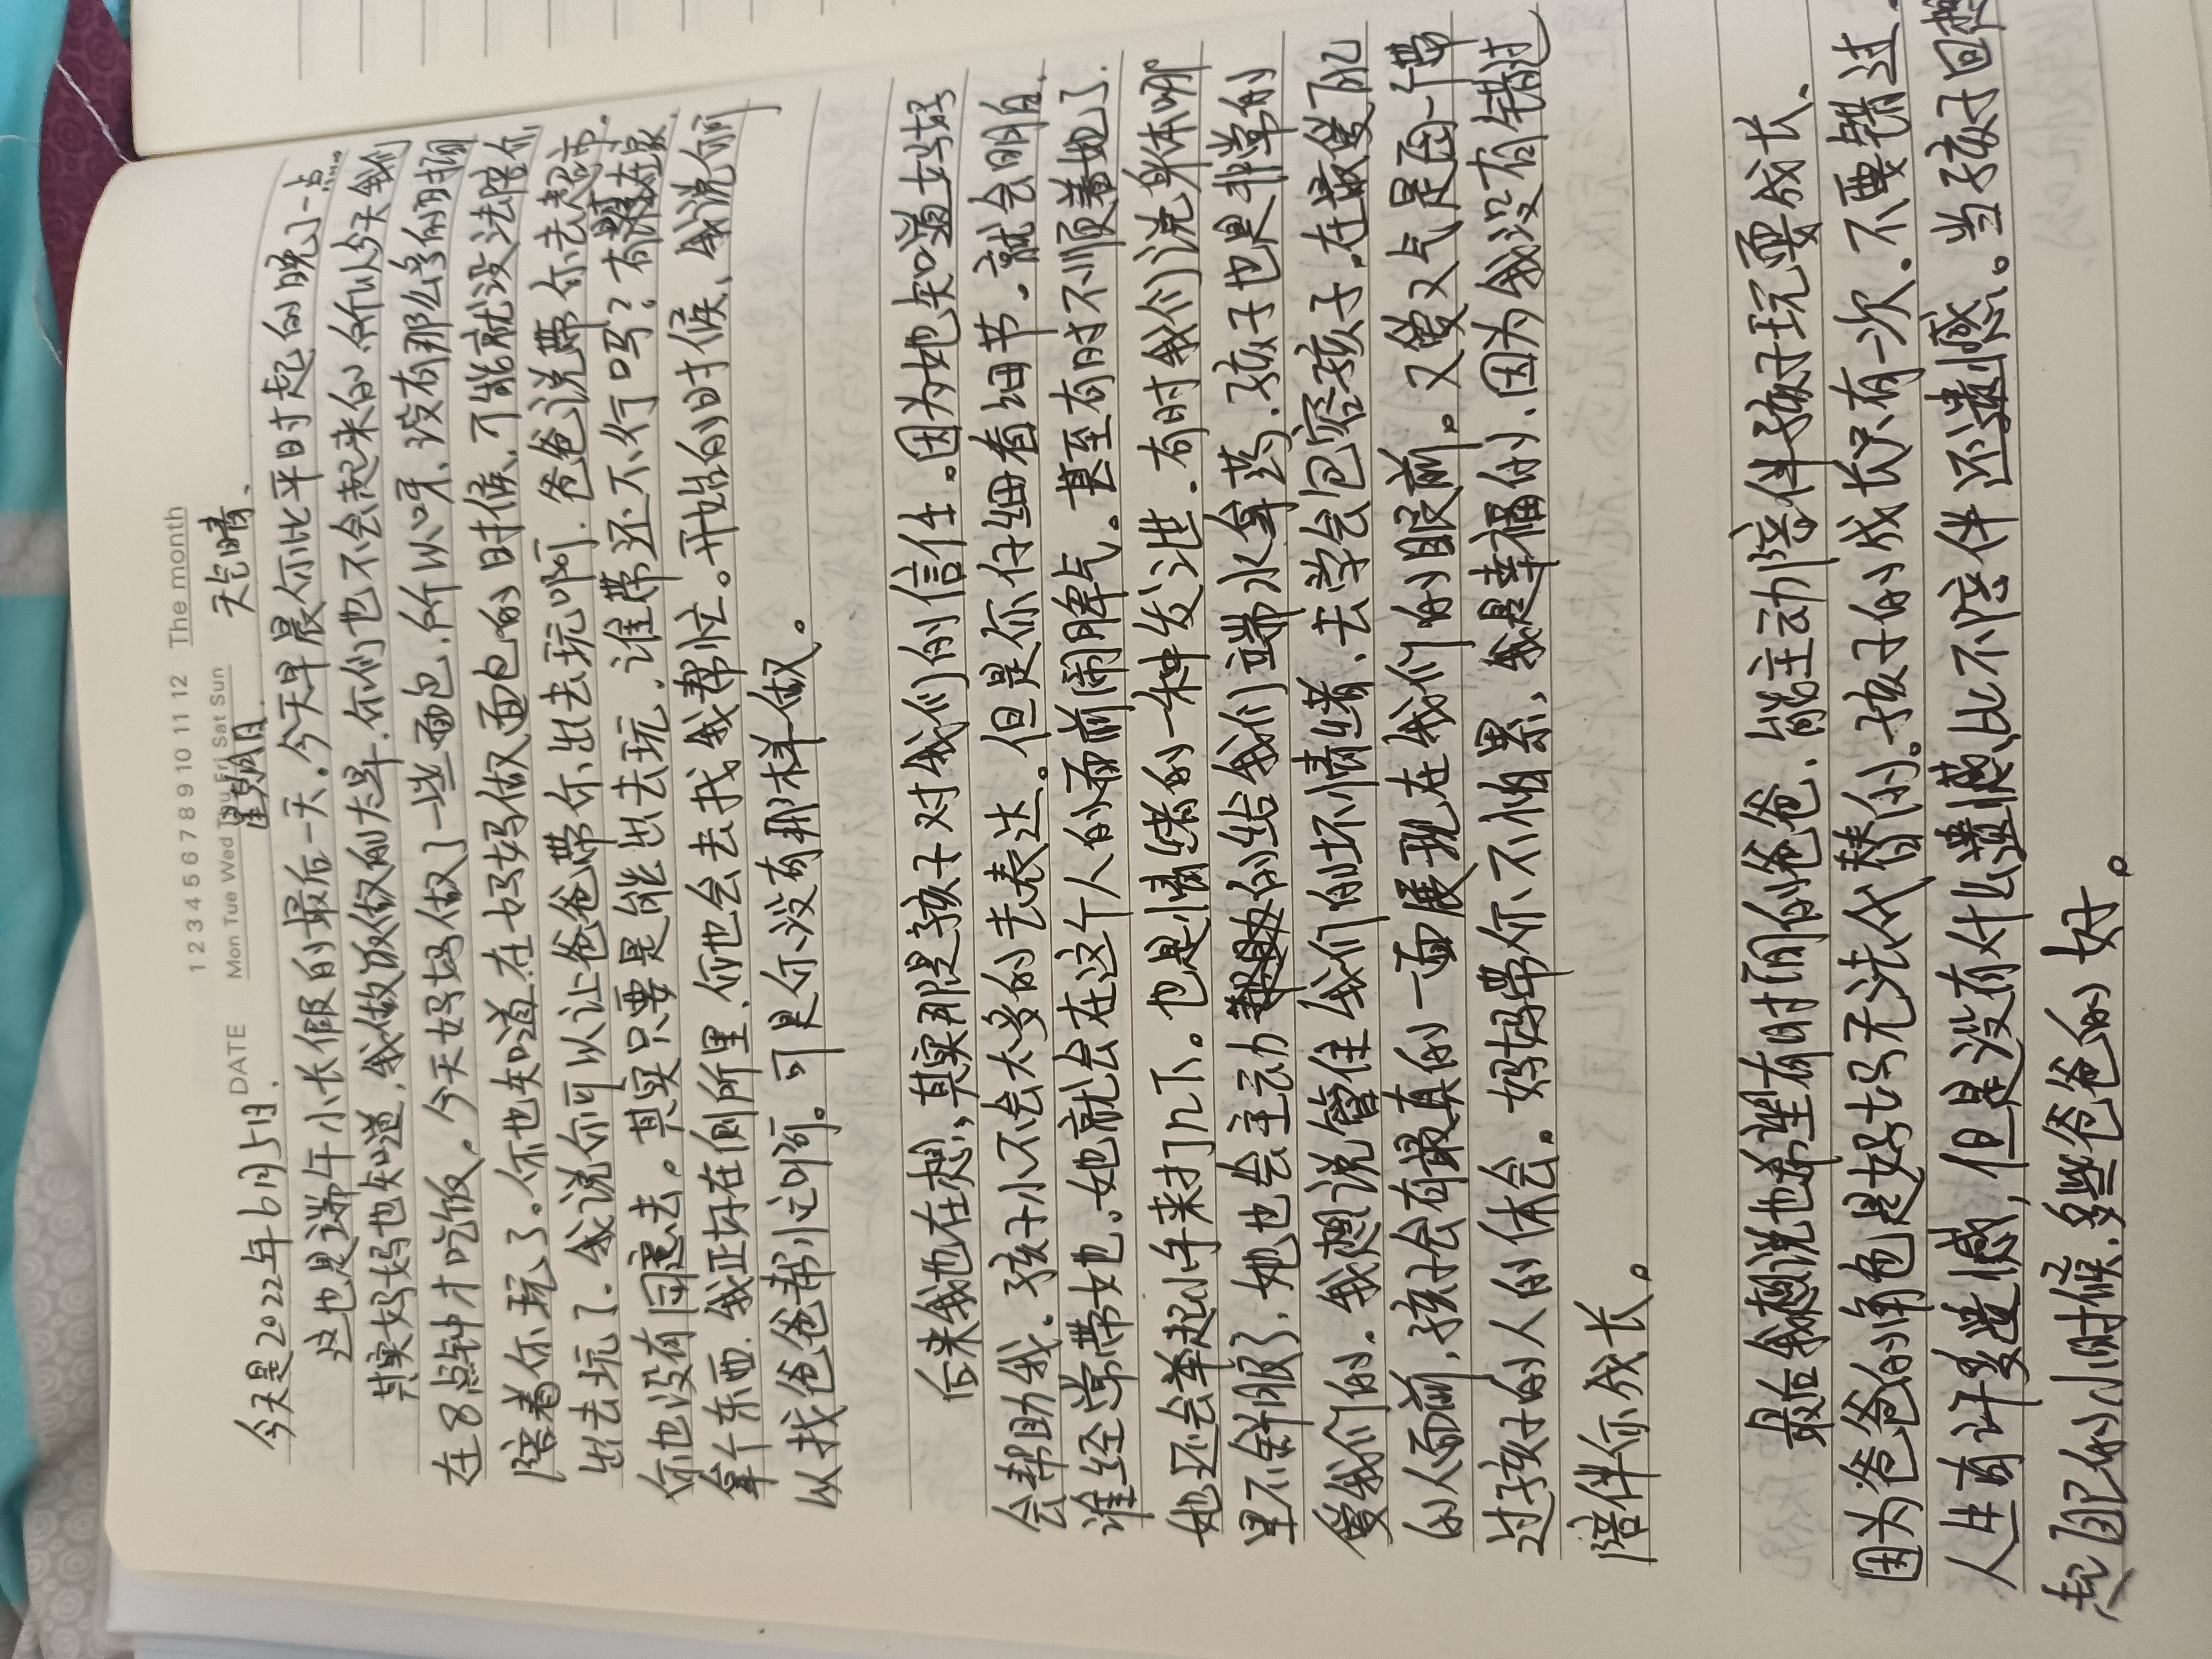 1 2 3 4 5 6 7 8 9 10 11 12 The month
DATE Mon Tue Wed Thu Fri Sat Sun
今天是2022年6月5日. 星期日. 天气晴、
这也是端午小长假的最后一天。今天早晨你比平时起的晚了一点...
其实妈妈也知道,我做饭做的太早.你们也不会起来的.所以今天我们
在8点钟才吃饭。今天妈妈做了一些面包.所以呀、没有那么多的时间
陪着你玩了。你也知道.在妈妈做面包的时候、可能就没法陪你
出去玩了. 我说你可以让爸爸带你出去玩啊.爸爸说带你去超市.
你也没有同意去。其实只要是能出去玩.谁带还不行吗?有 在家
拿个东西.我正好在侧所里、你也会去找我帮忙。开始的时候、我说你可
以找爸爸帮忙啊。可是你没有那样做。
后来我也在想,其实那是孩子对我们的信任。因为她知道妈妈
会帮助我。孩子小不会太多的去表达。但是你仔细看细节。就会明白.
谁经常带她。她就会在这个人的面前闹脾气。甚至有时不顺着她了.
她还会举起小手来打几下。也是情绪的一种发泄.有时我们说身体哪
里不舒服了.她也会主动 的给我们端水拿药.孩子也是非常的
爱我们的.我想说管住我们的坏情绪、去学会包容孩子.在最爱自己
的人面前,孩子会有最真的一面展现在我们的眼前。又爱又气是因一个带
过孩子的人的体会。妈妈带你不怕累,我是幸福的、因为我没有错过
陪伴你成长。
最后我想说也希望有时间的爸爸、能主动陪伴孩子玩耍成长、
因为爸爸的角色是妈妈无法代替的。孩子的成长只有一次.不要错过.
人生有许多遗憾,但是没有什么遗憾比不陪伴还遗憾。当孩子回想
起自己的小时候.多些爸爸的好。